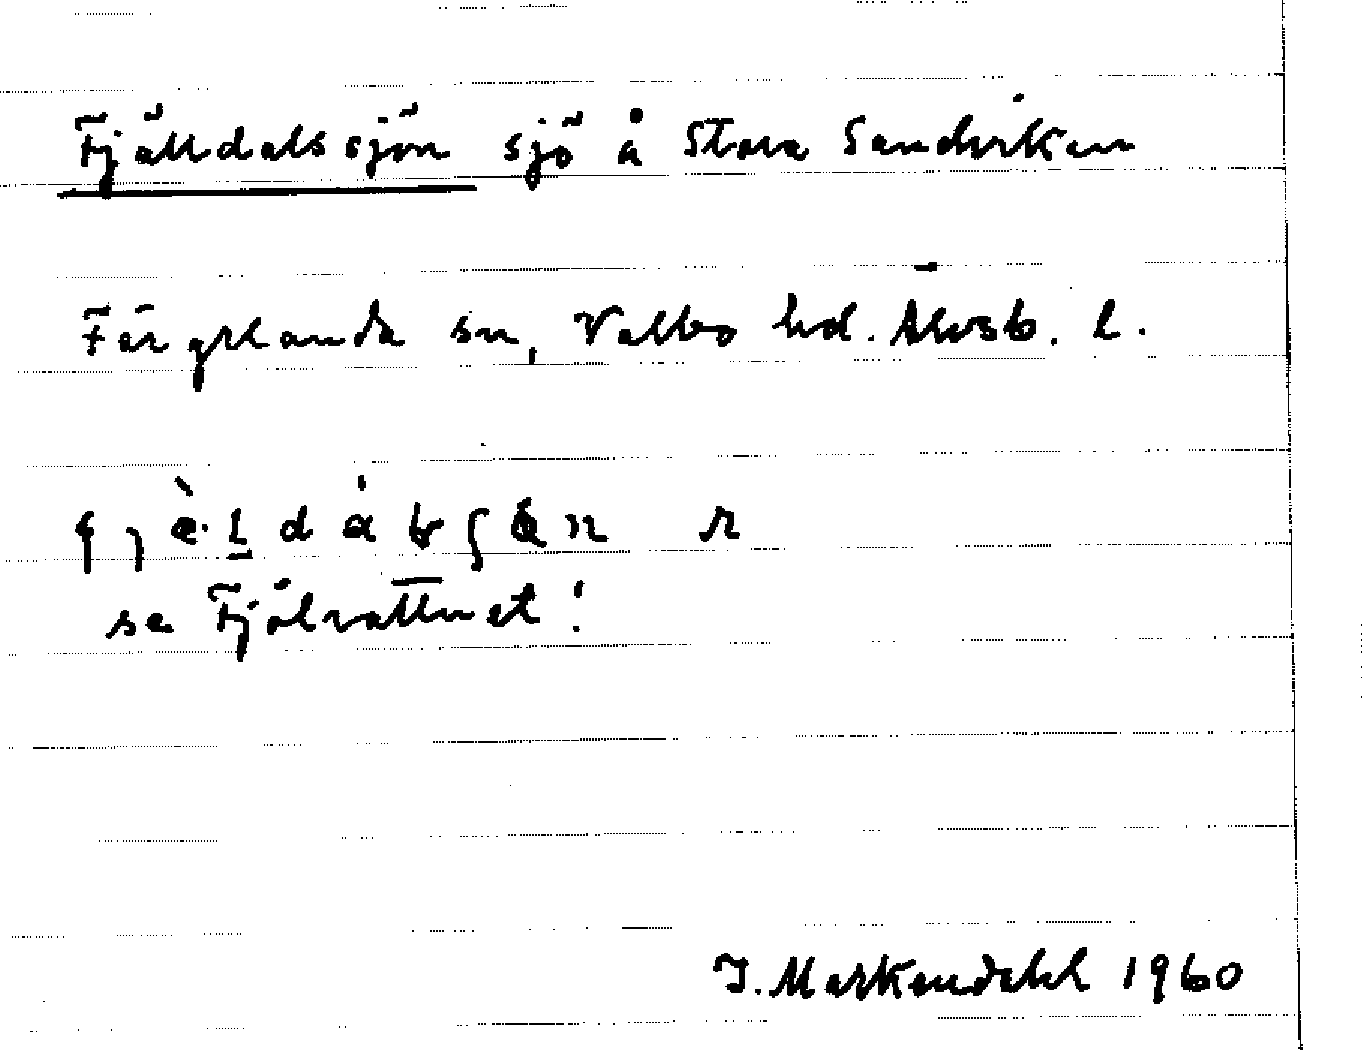 Fjälldalssjön sjö å Stora Sandviken
Färgelanda sn, Valbo hd. Älvsb. l.
se Fjölvattnet!
J. Markendahl 1960